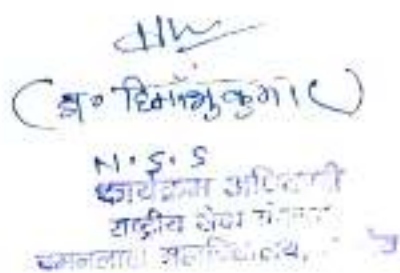 (डा० हिमांशु कुमार)
N.S.S
कार्यक्रम अधिकारी
राष्ट्रीय सेवा योजना
चमनलाल महाविद्यालय,